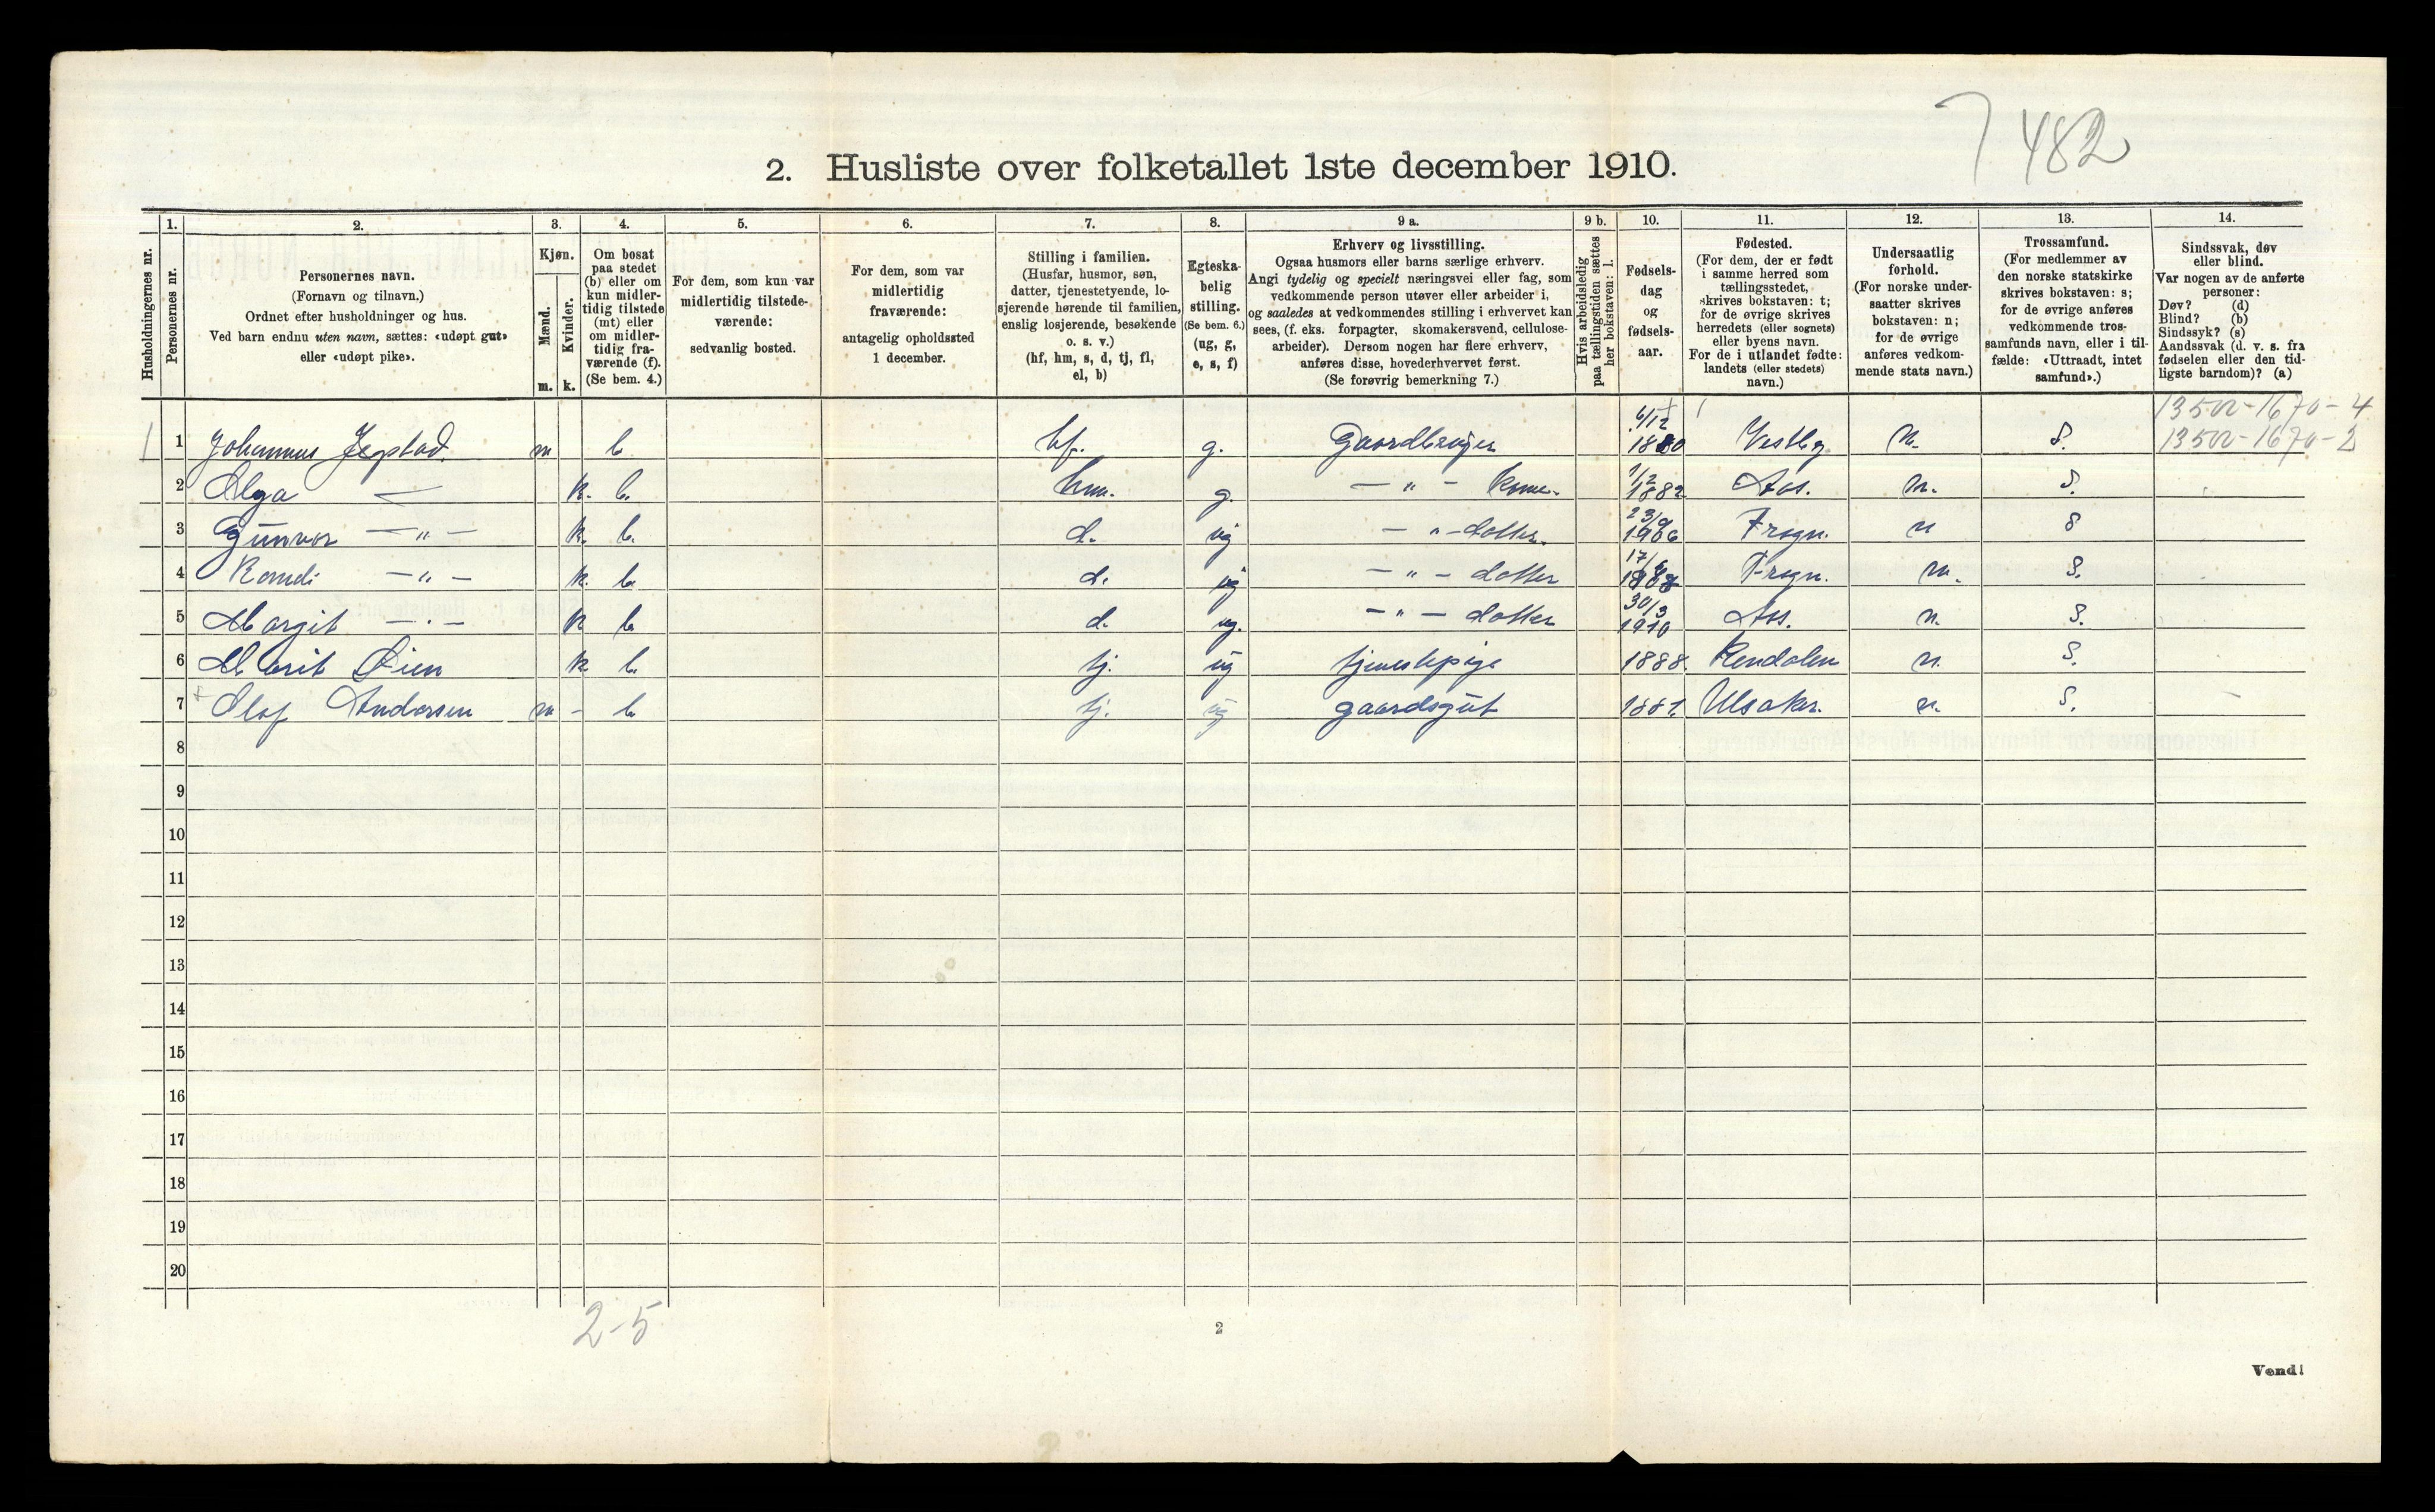 7 482
2. Husliste over folketallet 1ste december 1910.
Husholdningernes nr.
1. Personernes nr.
2. Personernes navn.
(Fornavn og tilnavn.)
Ordnet efter husholdninger og hus.
Ved barn endnu uten navn, sættes: «udøpt gut»
eller «udøpt pike».
3. Kjøn.
Mænd. m.
Kvinder. k.
4. Om bosat
paa stedet
(b) eller om
kun midler-
tidig tilstede
(mt) eller
om midler-
tidig fra-
værende (f).
(Se bem. 4.)
5. For dem, som kun var
midlertidig tilstede-
værende:
sedvanlig bosted.
6. For dem, som var
midlertidig
fraværende:
antagelig opholdssted
1 december.
7. Stilling i familien.
(Husfar, husmor, søn,
datter, tjenestetyende, lo-
sjerende hørende til familien,
enslig losjerende, besøkende
o. s. v.)
(hf, hm, s, d, tj, fl,
el, b)
8. Egteska-
belig
stilling.
(Se bem. 6.)
(ug, g,
e, s, f)
9 a. Erhverv og livsstilling.
Ogsaa husmors eller barns særlige erhverv.
Angi tydelig og specielt næringsvei eller fag, som
vedkommende person utøver eller arbeider i,
og saaledes at vedkommendes stilling i erhvervet kan
sees, (f. eks. forpagter, skomakersvend, cellulose-
arbeider). Dersom nogen har flere erhverv,
anføres disse, hovederhvervet først.
(Se forøvrig bemerkning 7.)
9 b. Hvis arbeidsledig
paa tællingstiden sættes
her bokstaven: l.
10. Fødsels-
dag
og
fødsels-
aar.
11. Fødested.
(For dem, der er født
i samme herred som
tællingsstedet,
skrives bokstaven: t;
for de øvrige skrives
herredets (eller sognets)
eller byens navn.
For de i utlandet fødte:
landets (eller stedets)
navn.)
12. Undersaatlig
forhold.
(For norske under-
saatter skrives
bokstaven: n;
for de øvrige
anføres vedkom-
mende stats navn.)
13. Trossamfund.
(For medlemmer av
den norske statskirke
skrives bokstaven: s;
for de øvrige anføres
vedkommende tros-
samfunds navn, eller i til-
fælde: «Uttraadt, intet
samfund».)
14. Sindssvak, døv
eller blind.
Var nogen av de anførte
personer:
Døv? (d)
Blind? (b)
Sindssyk? (s)
Aandssvak (d. v. s. fra
fødselen eller den tid-
ligste barndom)? (a)
1 1 Johannes Jegstad. m b hf. g. Gaardbruger 6/12 1880 Vestby n. S.
2 Olga — k. b. hm. g. — " — kone. 1/12 1882 Aas. n. S.
3 Gunvor — " — k. b. d. ug — " — datter. 1906 Frogn. n S
4 Randi — " — k. b. d. ug — " — datter Frogn. n. S.
5 Margit — " — k b d. ug. — " — datter 30/3 1910 Aas. n. S.
6 Marit Øien k b. tj. ug tjenestepige 1888. Rendalen n. S.
7 Olaf Andersen m - b. tj. ug gaardsgut Ulsaker. n. S.
8
9
10
11
12
13
14
15
16
17
18
19
20
2-5
2
Vend!